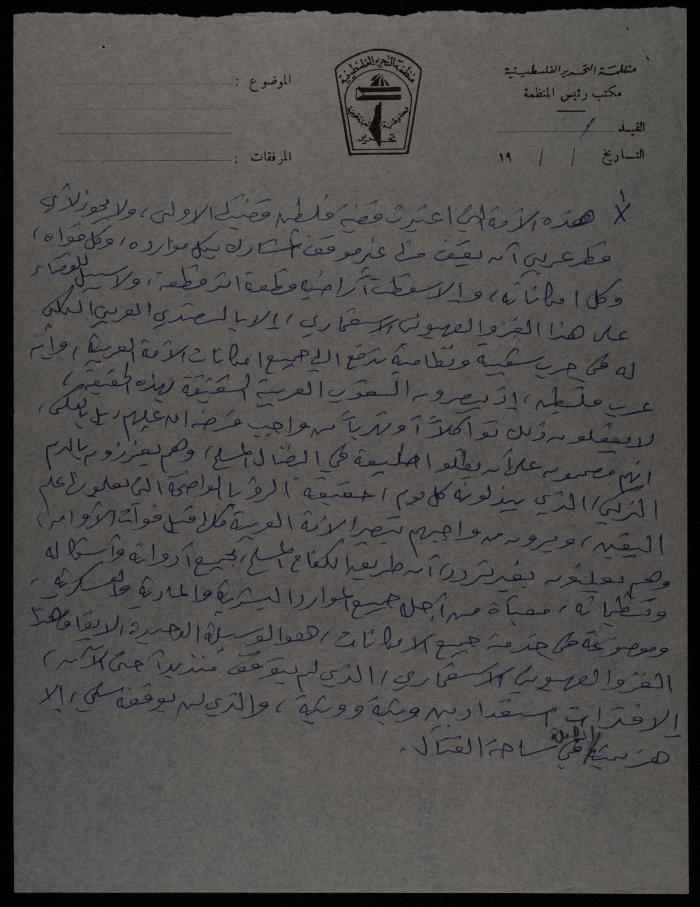 منظمة التحرير الفلسطينية
مكتب رئيس المنظمة
القيد /
التاريخ / / ١٩
الموضوع :
المرفقات :
منظمة التحرير الفلسطينية
هذه الأمة التي اعتبرت قضية فلسطين قضيتها الاولى، ولا يجوز لأي
قطر عربي أن يقف منها غير موقف المشارك بكل موارده، وكل قواه،
وكل امكاناته، وإلا سقطت أراضيه قطعة اثر قطعة، ولا سبيل للقضاء
على هذا الغزو الصهيوني الاستعماري، إلا بالتصدي العربي الكلي
له في حرب شعبية ونظامية تدفع إلى جميع امكانات الأمة العربية، وأن
عرب فلسطين، إذ يبصرون الشعوب العربية الشقيقة بهذه الحقيقة،
لا يفعلون ذلك تواكلاً أو تهرباً من واجب فرضه الله عليهم، بل بالعكس،
انهم مصممون على أن يظلوا الطليعة في النضال المسلح، وهم يعززون بالدم
الزكي، الذي يبذلونه كل يوم، حقيقة الرؤيا الواضحة التي يعلمونها علم
اليقين، ويرون من واجبهم تبصير الأمة العربية كلها قبل فوات الأوان،
وهم يعلنون بغير تردد، أن طريق الكفاح المسلح، بجميع أدواته وأشكاله
وتنظيماته، معبأة من أجله جميع الموارد البشرية والمادية والعسكرية،
وموضوعة في خدمته جميع الامكانات، هو الوسيلة الوحيدة لايقاف هذا
الغزو الصهيوني الاستعماري، الذي لم يتوقف منذ بدأ حتى الآن،
إلا لفترات استعداد بين وثبة ووثبة، والذي لن يوقفه شيء، إلا
هزيمته في ساحة القتال.